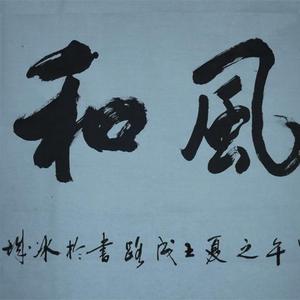 風和
午之夏王成路書於冰城